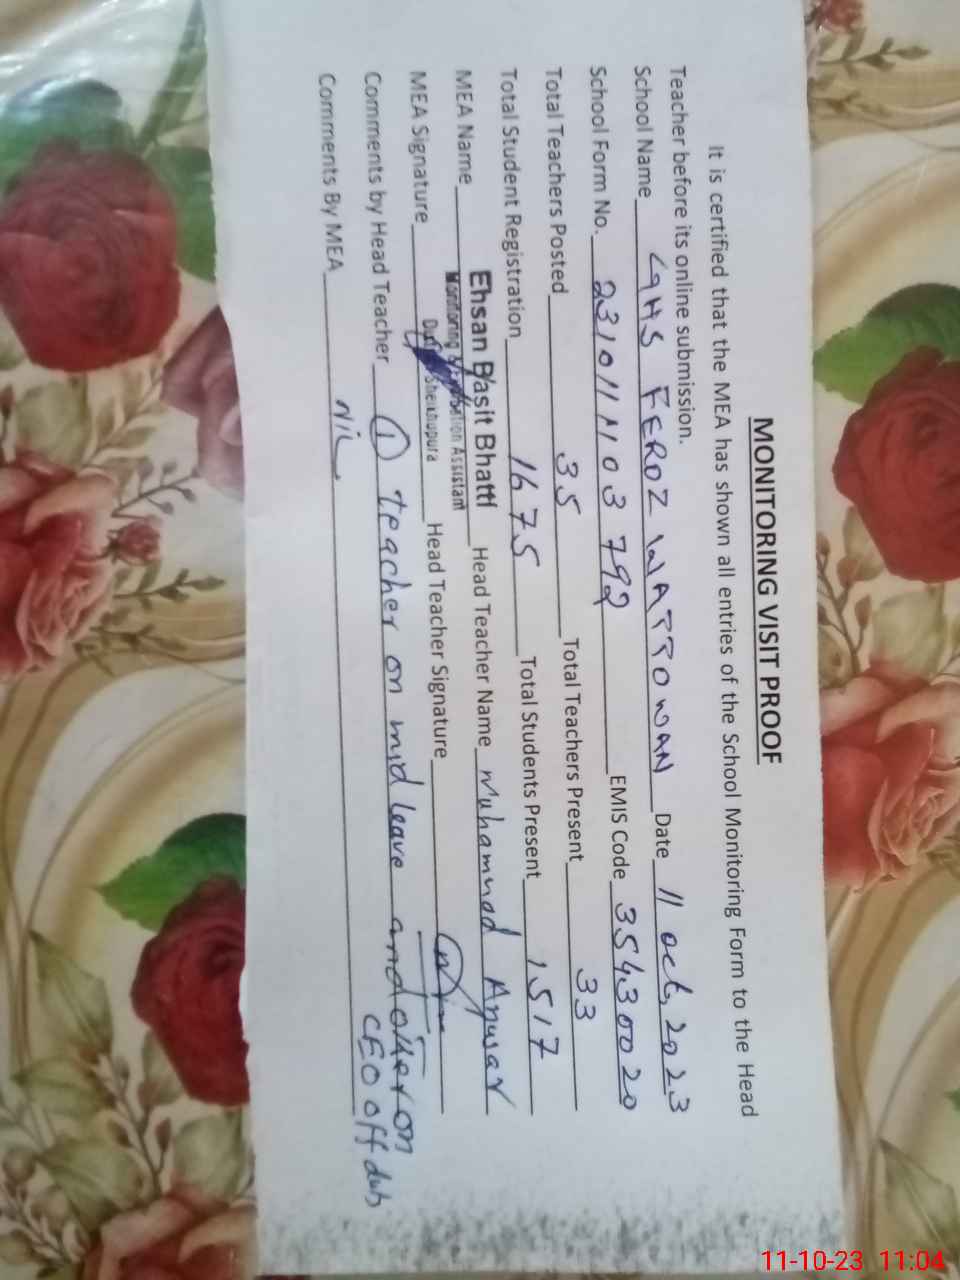 MONITORING VISIT PROOF
It is certified that the MEA has shown all entries of the School Monitoring Form to the Head
Teacher before its online submission.
School Name GHS FEROZ WATTOWAN Date 11 oct, 2023
School Form No. EMIS Code 35430020
Total Teachers Posted 35 Total Teachers Present 33
Total Student Registration 1675 Total Students Present 1517
MEA Name Ehsan Basit Bhatti Head Teacher Name Muhammad Anwar
Monitoring & Assistant
MEA Signature Sheikhupura Head Teacher Signature
Comments by Head Teacher ① teacher on leave and other on
CEO off
Comments By MEA Nil
11-10-23 11:04